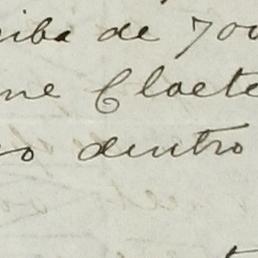 riba de 700
me Cloete
o dentro